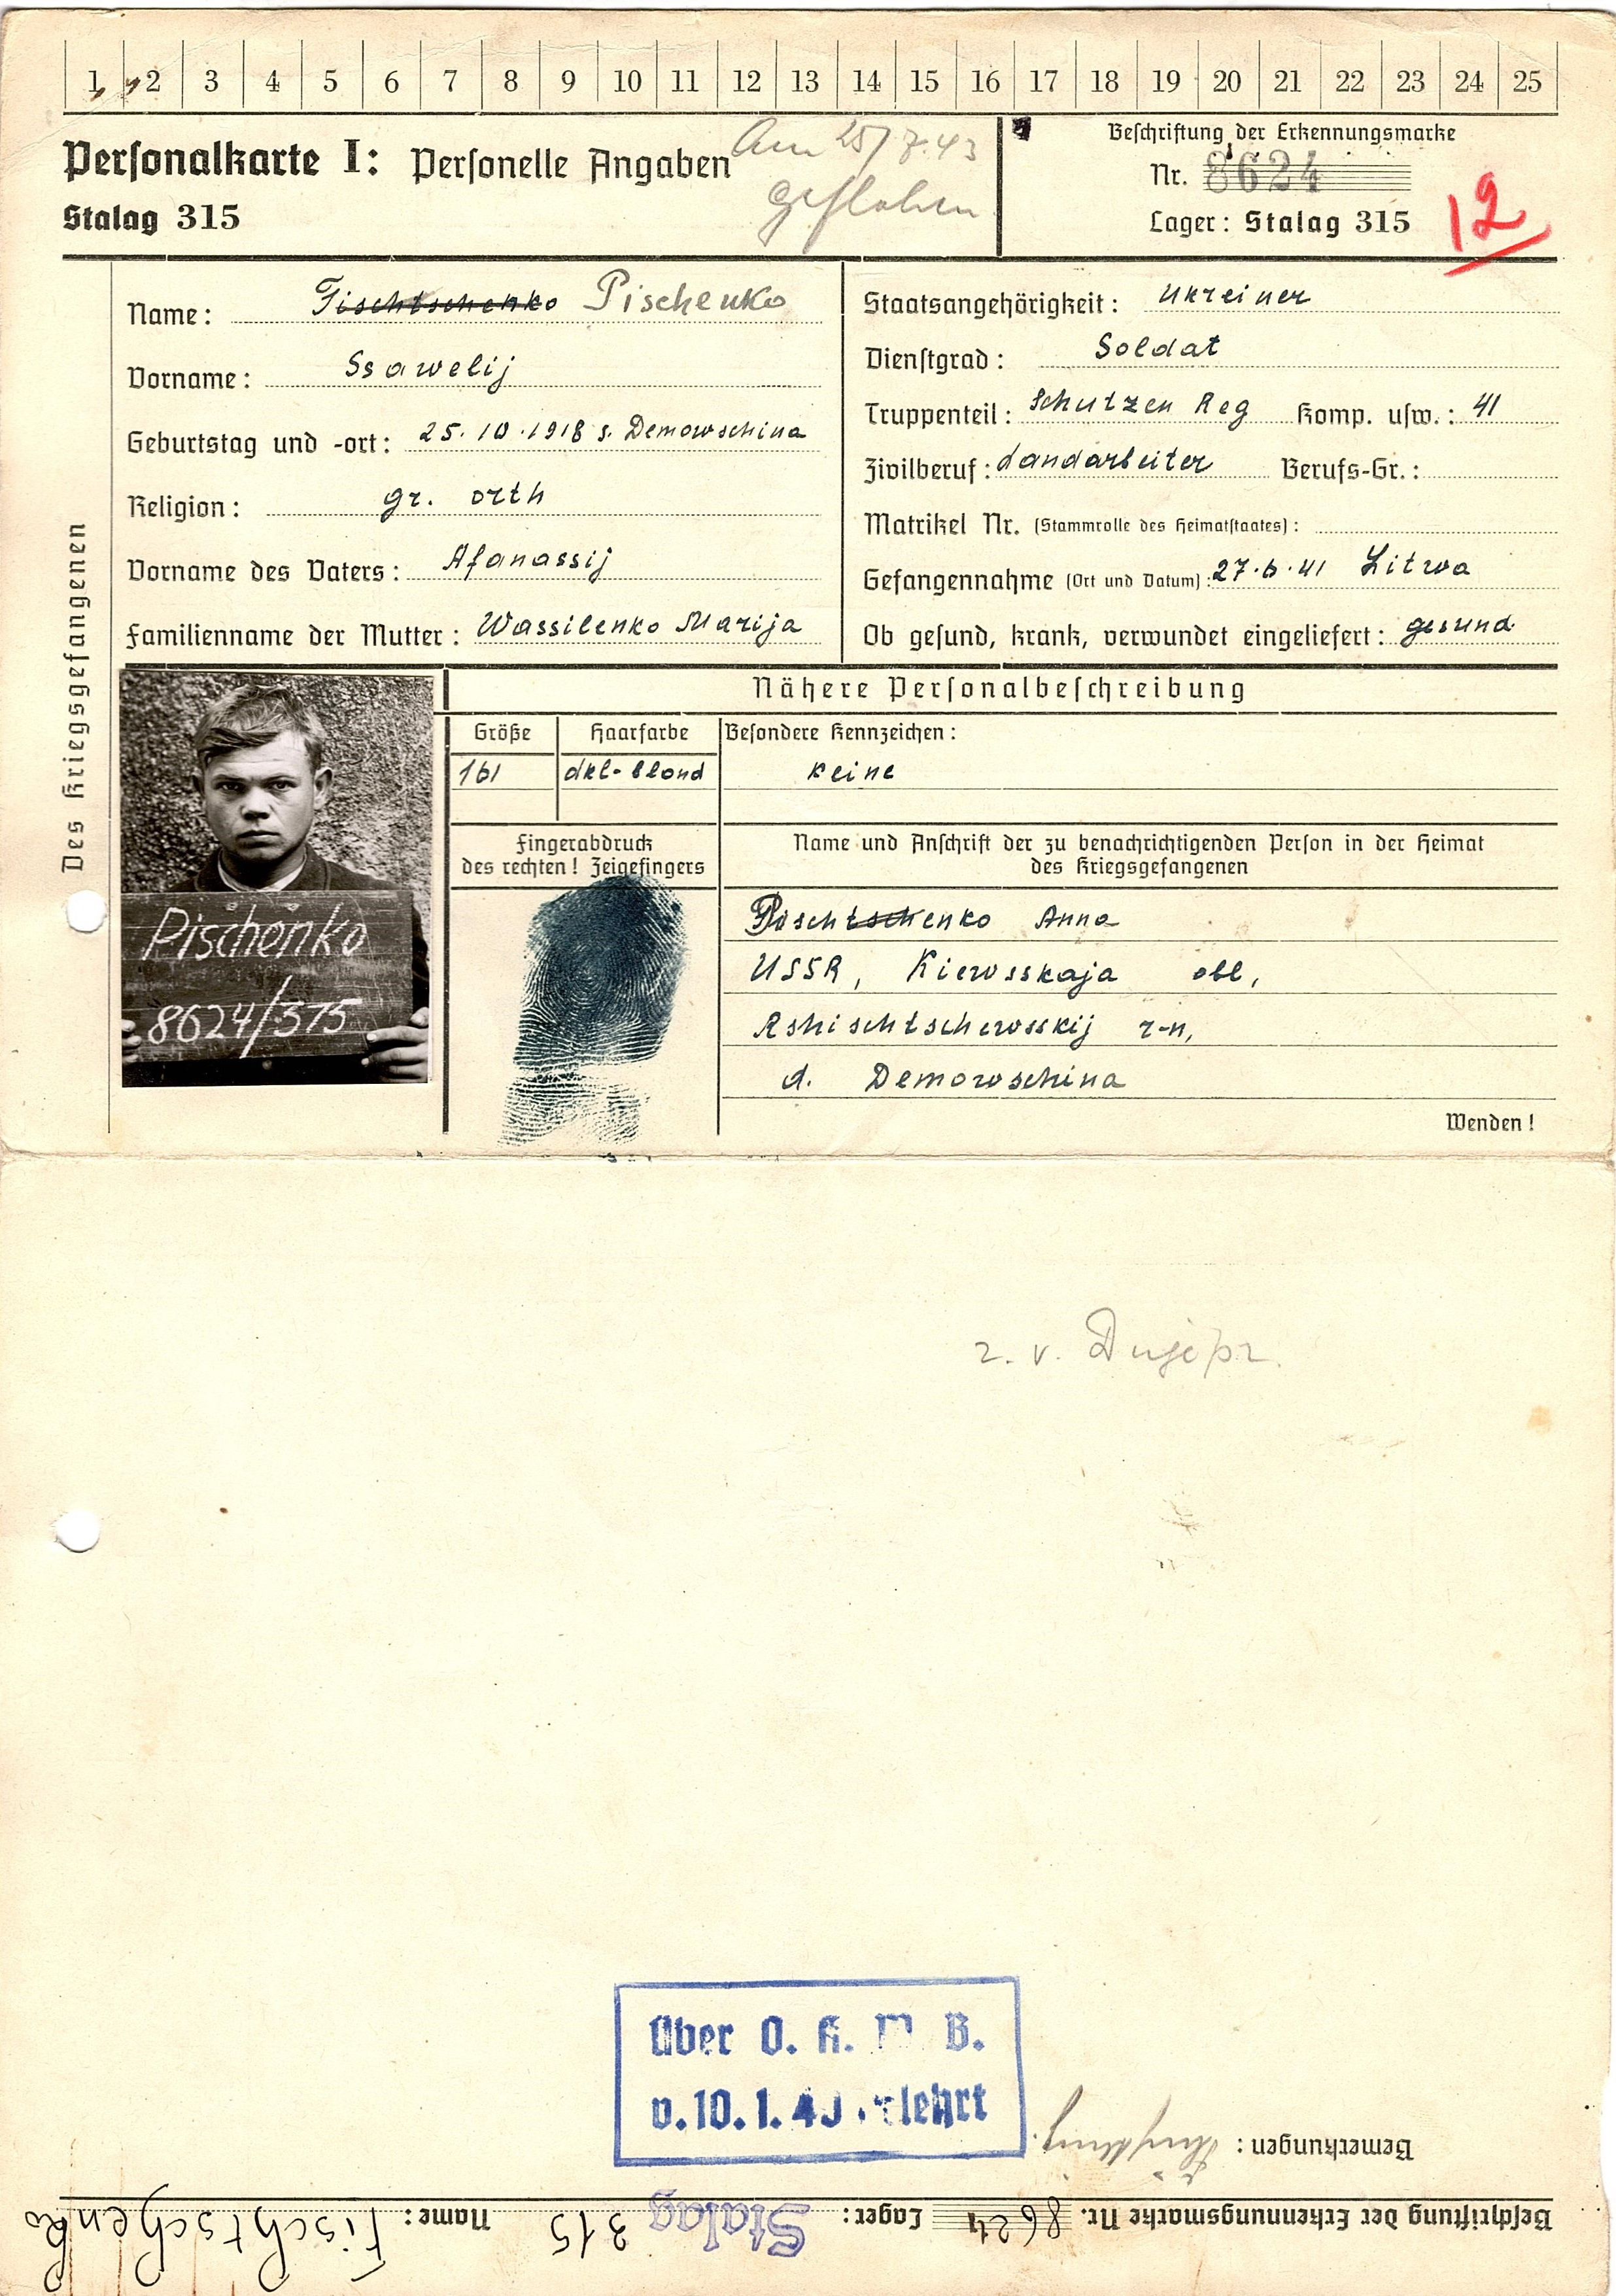 1 2 3 4 5 6 7 8 9 10 11 12 13 14 15 16 17 18 19 20 21 22 23 24 25
Personalkarte I: Personelle Angaben
Am 25/7.43
geflohen
Stalag 315
Beschriftung der Erkennungsmarke
Nr. 8624
Lager: Stalag 315
12
Des Kriegsgefangenen
Name: Fischtschenko Pischenko
Vorname: Ssawelij
Geburtstag und -ort: 25.10.1918 s. Demowschina
Religion: gr. orth
Vorname des Vaters: Afanassij
Familienname der Mutter: Wassilenko Marija
Staatsangehörigkeit: Ukreiner
Dienstgrad: Soldat
Truppenteil: Schutzen Reg Komp. usw.: 41
Zivilberuf: Landarbeiter Berufs-Gr.:
Matrikel Nr. (Stammrolle des Heimatstaates):
Gefangennahme (Ort und Datum): 27.6.41 Litwa
Ob gesund, krank, verwundet eingeliefert: gesund
Pischenko
8624/315
Nähere Personalbeschreibung
Größe Haarfarbe Besondere Kennzeichen:
161 dkl-blond keine
Fingerabdruck
des rechten! Zeigefingers
Name und Anschrift der zu benachrichtigenden Person in der Heimat
des Kriegsgefangenen
Pischtschenko Anna
USSR, Kiewsskaja obl,
Rshischtschewsskij r-n,
d. Demowschina
Wenden!
z. v. Dnjepr.
Über O. K. W. B.
v. 10.1.43 belehrt
Bemerkungen:
Beschriftung der Erkennungsmarke Nr. 8624 Lager: Stalag 315 Name: Fischtschenko